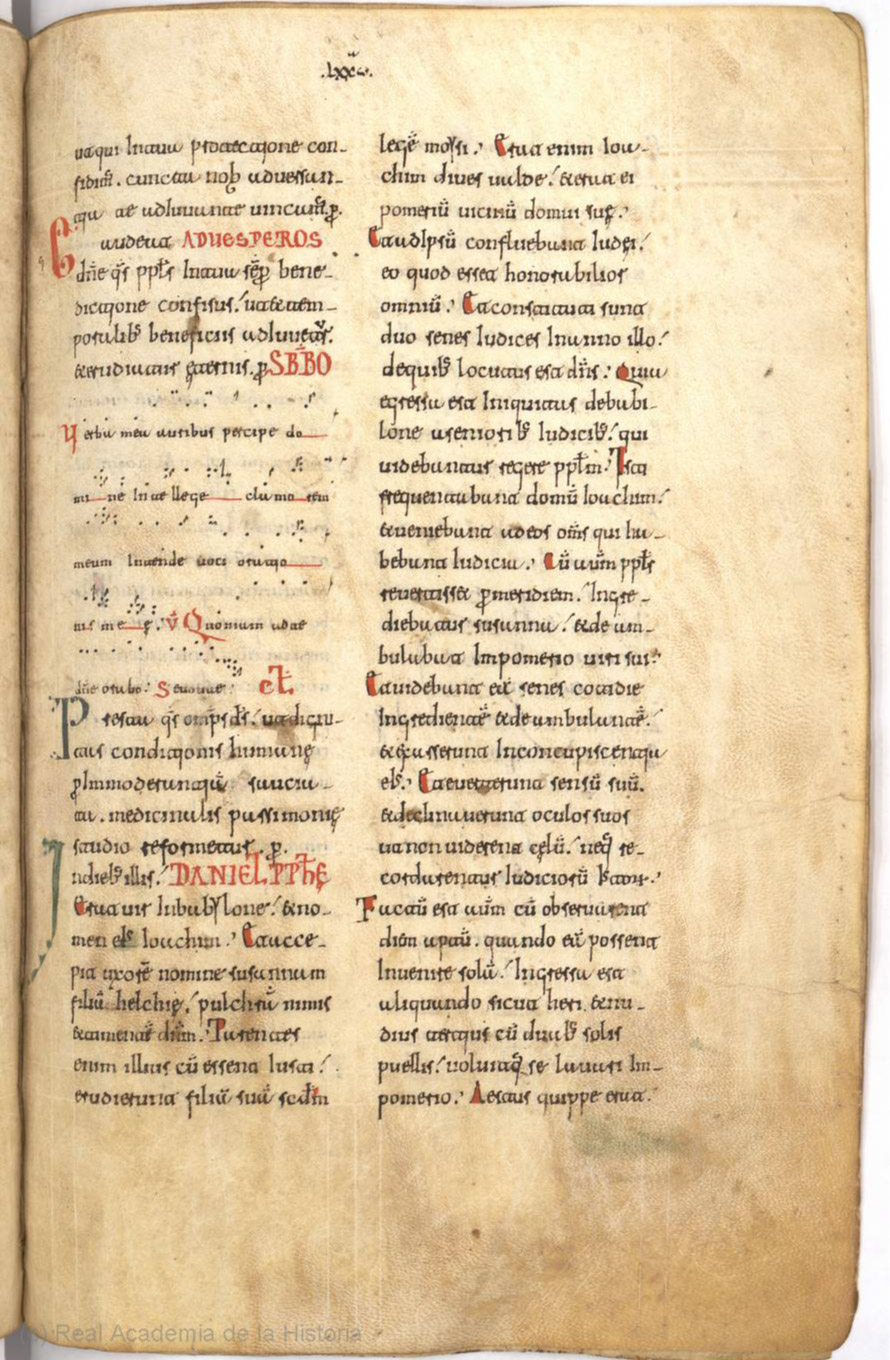 .lxx̃.
ut qui in tua protectione con-
fidim̄. cuncta nob̄ aduersan-
tia te adiuuante uincam̄. p̄.
Gaudeat ADUESPEROS
dn̄e q̄s ppl̄s in tua sēp bene-
dictione confisus. ut & tem-
poralib; beneficiis adiuuet̄.
& erudiatur ęternis. p̄ SBBO
Verba mea auribus percipe do
mi ne intellege clamorem
meum intende uoci oratio
nis me ę. V̄ Quoniam ad te
dn̄e orabo. Seuouae. cL̄
Presta q̄s omp̄s d̄s. ut dicta-
tus conditionis humanę
p̄ inmoderantiā saucia-
ta. medicinalis parsimonię
studio reformetur. p̄.
In dieb; illis. DANIEL PPh̄E
Erat uir in babylone. & no-
men ei; ioachim. Et acce-
pit uxorē nomine susannam
filiā helchię. pulchrā nimis
& timentē dn̄m. Parentes
enim illius cū essent iusti.
erudierunt filiā suā scd̄m
legē moysi. Erat enim ioa-
chim diues ualde. & erat ei
pomeriū uicinū domui suę.
Et ad ipsū confluebant iudęi.
eo quod esset honorabilior
omniū. Et constituti sunt
duo senes iudices in anno illo.
de quib; locutus est dn̄s. Quia
egressa est iniquitas de babi-
lone a seniorib; iudicib;. qui
uidebantur regere ppl̄m. Isti
frequentabant domū ioachim.
& ueniebant ad eos om̄s qui ha-
bebant iudicia. Cū autm̄ ppl̄s
reuertisset p̄ meridiem. ingre-
diebatur susanna. & deam-
bulabat in pomerio uiri sui.
Et uidebant eā senes cotidie
ingredientē & deambulantē.
& exarserunt in concupiscentia
ei;. Et euerterunt sensū suū.
& declinauerunt oculos suos
ut non uiderent cęlū. neq; re-
cordarentur iudiciorū iustor.
Factū est autm̄ cū obseruarent
diem aptū. quando eā possent
inuenire solā. ingressa est
aliquando sicut heri. & nu-
dius tertius cū duab; solis
puellis. uoluitq; se lauari in
pomerio. Aestus quippe erat.
Real Academia de la Historia